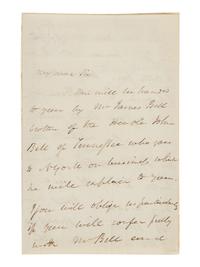 My dear Sir
This will be handed
to you by Mr James Bell
brother of the Honble John
Bell of Tennessee who goes
to N York on business which
he will explain to you.
You will oblige us particularly
if you will confer freely
with Mr Bell and